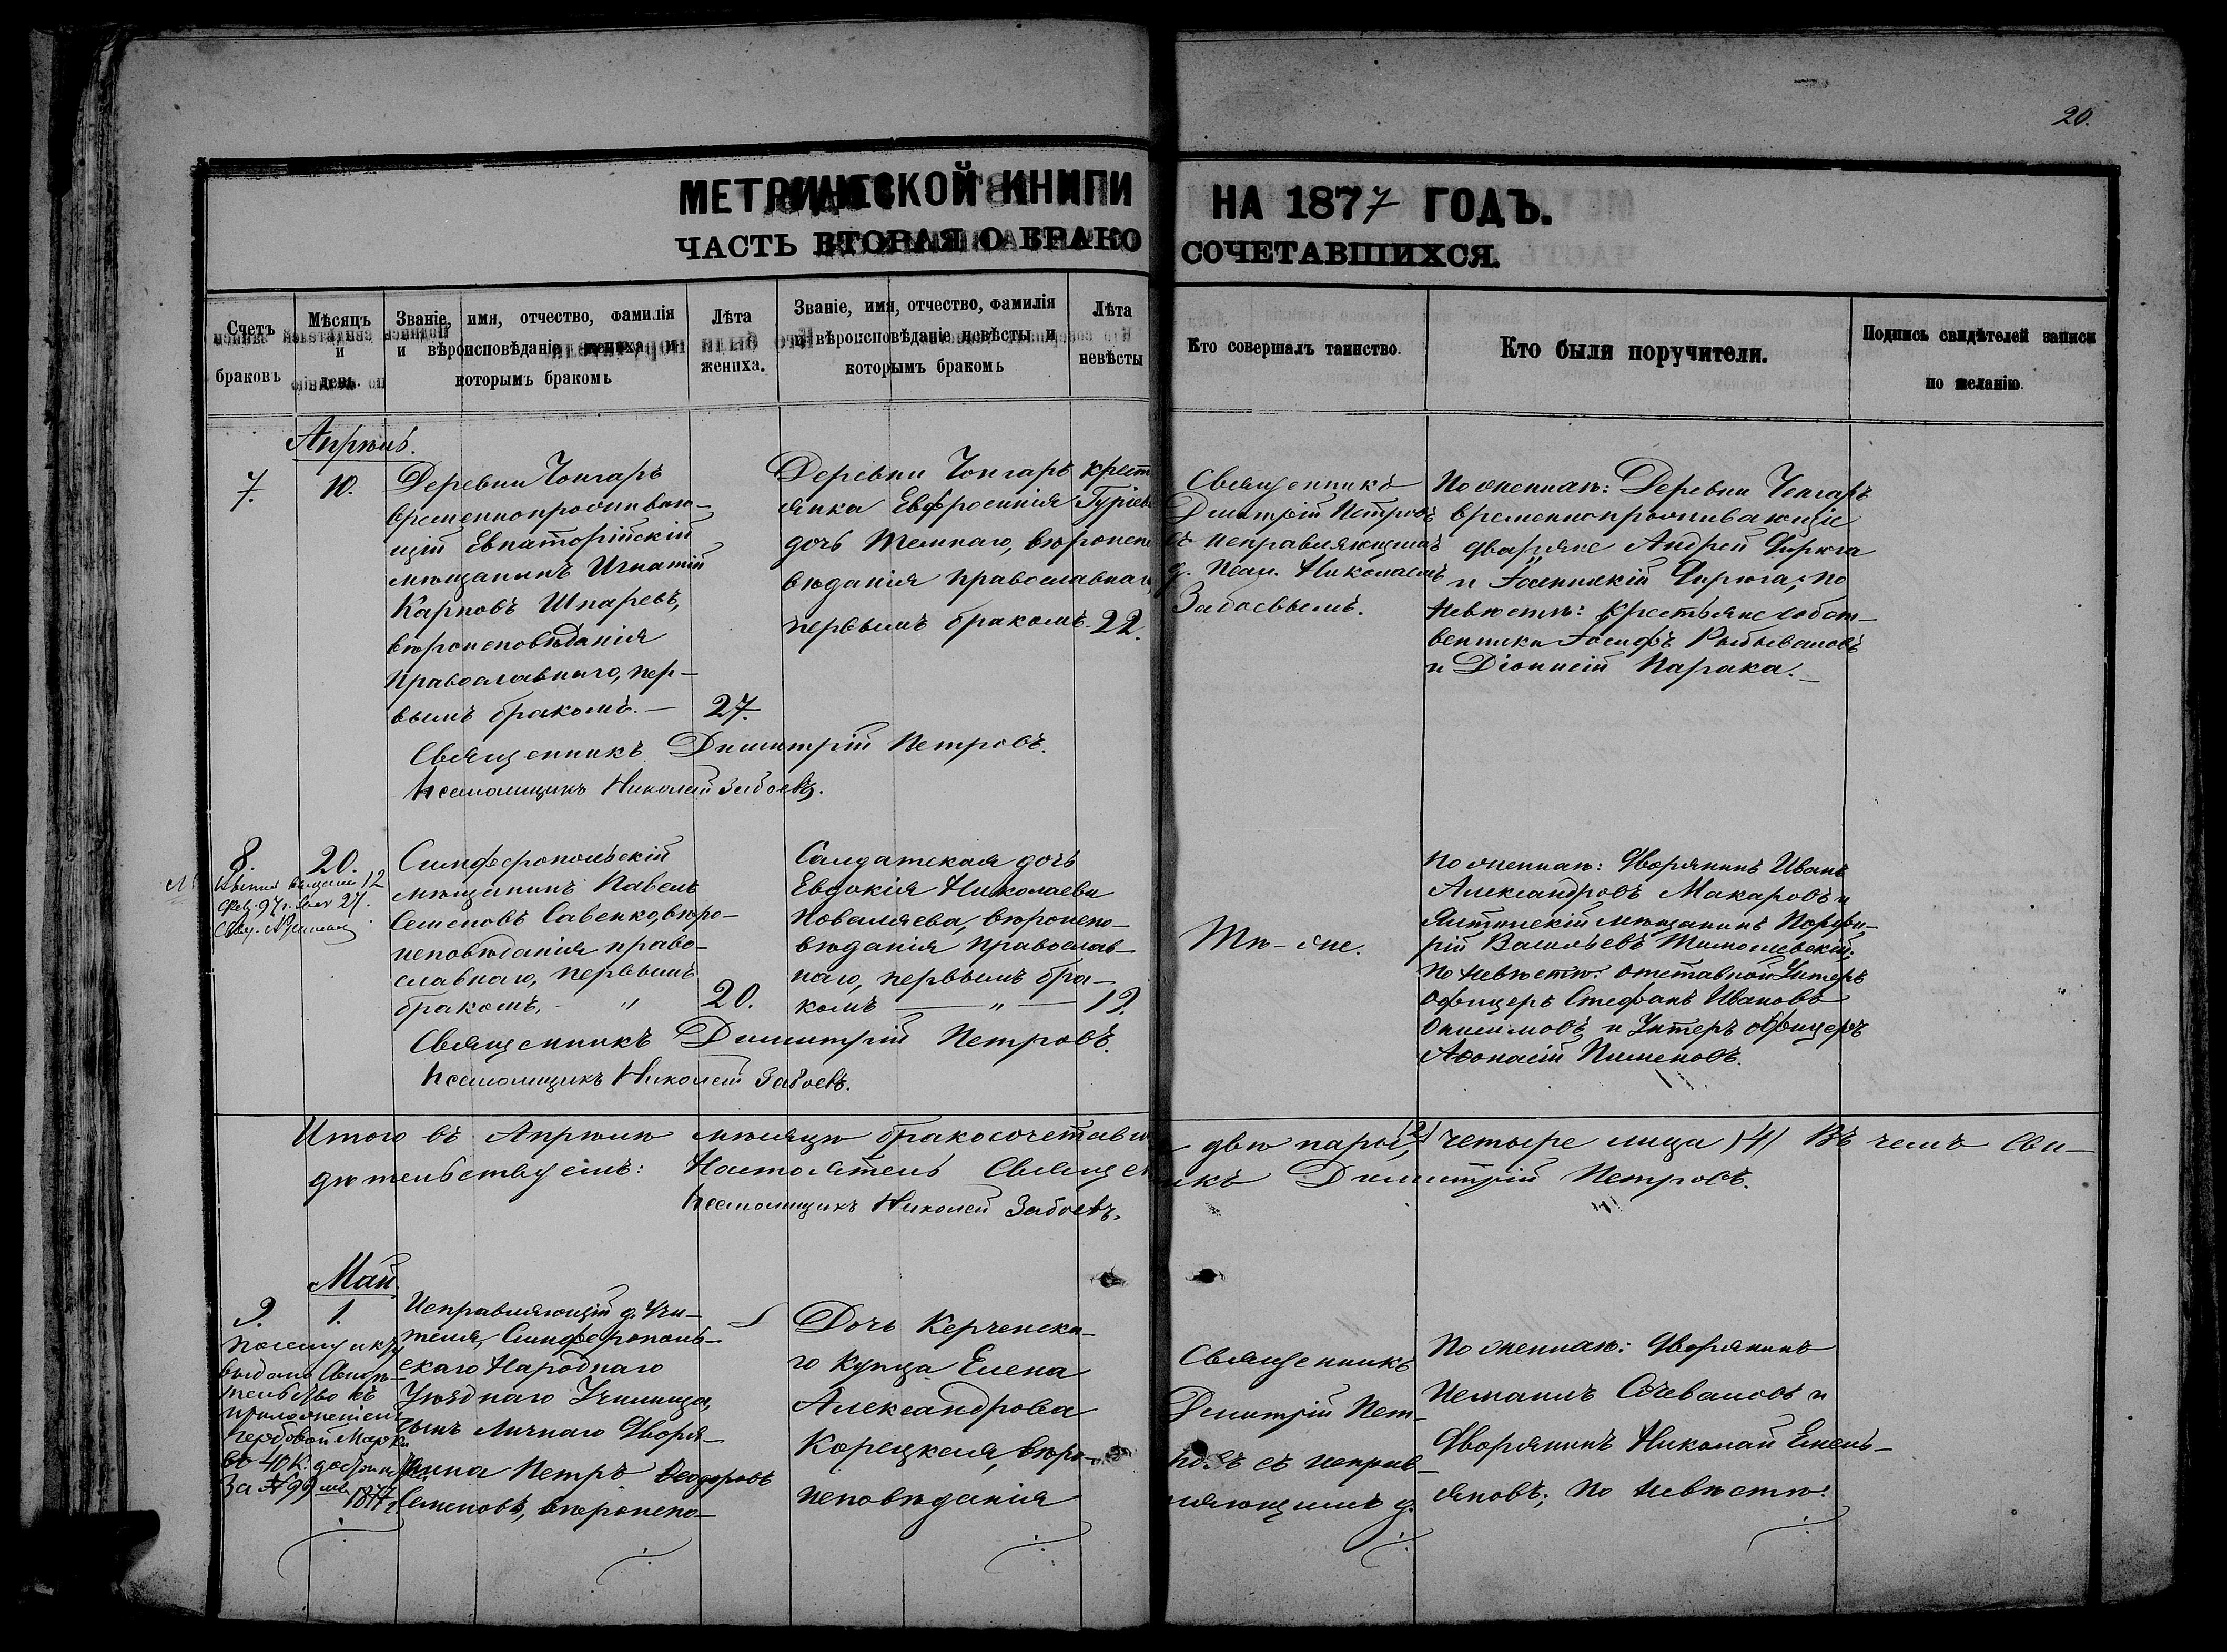 20.
МЕТРИЧЕСКОЙ КНИГИ НА 1877 ГОДЪ.
ЧАСТЬ ВТОРАЯ О БРАКОСОЧЕТАВШИХСЯ.
Счетъ браковъ
Мѣсяцъ и день.
Званіе, имя, отчество, фамилія
и вѣроисповѣданіе жениха и
которымъ бракомъ
Лѣта жениха.
Званіе, имя, отчество, фамилія
и вѣроисповѣданіе невѣсты и
которымъ бракомъ
Лѣта невѣсты
Кто совершалъ таинство.
Кто были поручители.
Подпись свидѣтелей записи
по желанію.
Апрѣль.
7.
10.
Деревни Чонгаръ
временнопроживаю-
щій Евпаторійскій
мѣщанинъ Игнатій
Карповъ Шпаревъ,
вѣроисповѣданія
православнаго, пер-
вымъ бракомъ. —
27.
Деревни Чонгаръ крест
янка Евфросинія Гуріева
дочь Темнаго, вѣроиспо
вѣданія православнаго,
первымъ бракомъ
22.
Священникъ
Димитрій Петровъ
съ исправляющимъ
д. псал. Николаемъ
Забоевымъ.
По жениху: Деревни Чонгаръ
временнопроживающіе
дворяне Андрей Чирюга
и Іоанникій Чирюга; по
невѣстѣ: крестьяне собст-
венники Іосифъ
и Діонисій Парака. —
Священникъ Димитрій Петровъ.
Псаломщикъ Николай Забоевъ.
8.
20.
12
Фев. 97 г. за № 27.
Симферопольскій
мѣщанинъ Павелъ
Семеновъ Савенко, вѣро-
исповѣданія право-
славнаго, первымъ
бракомъ. - "
20.
Салдатская дочь
Евдокія Николаева
Коваляева, вѣроиспо-
вѣданія православ-
наго, первымъ бра-
комъ — " —
19.
Тѣ-же.
По жениху: Дворянинъ Иванъ
Александровъ Макаровъ и
Ялтинскій мѣщанинъ Порфи-
рій Васильевъ Тимошевскій;
по невѣстѣ: отставной Унтеръ
офицеръ Стефанъ Ивановъ
Онисимовъ и Унтеръ офицеръ
Аѳонасій Пименовъ.
Священникъ Димитрій Петровъ.
Псаломщикъ Николай Забоевъ.
Итого въ Апрѣлѣ мѣсяцѣ бракосочетав двѣ пары /2/, четыре лица /4/ Въ чемъ сви-
дѣтельствуемъ: Настоятель Священникъ Димитрій Петровъ.
Псаломщикъ Николай Забоевъ.
Май.
9.
1.
выдано Свидѣ-
тельство съ
приложеніемъ
Гербовой Марки
въ 40 к.
за № 99
1877 г.
Исправляющій д. Учи-
теля, Симферополь-
скаго Народнаго
Уѣзднаго Училища,
сынъ личнаго Дворя-
нина Петръ Ѳеодоровъ
Семеновъ, вѣроиспо-
Дочь Керченска-
го купца Елена
Александрова
Корецкая, вѣро-
исповѣданія
Священникъ
Димитрій Пет-
ровъ съ исправ-
ляющимъ д.
По жениху: Дворянинъ
Сочевановъ и
Дворянинъ Николай Емель-
яновъ; по невѣстѣ: